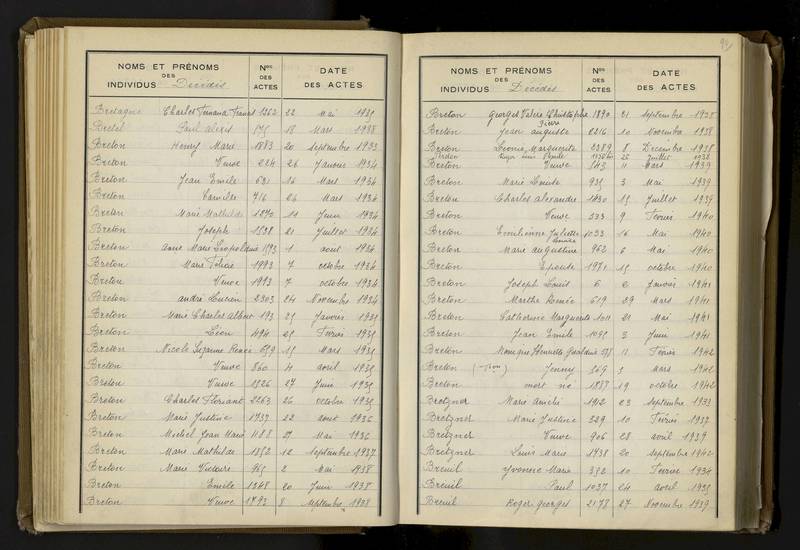 NOMS ET PRÉNOMS DES INDIVIDUS Décédés Nos DES ACTES DATE DES ACTES
Bretagne Charles 1262 22 Mai 1935
Bretel Paul Alexis 18 Mars 1938
Breton Henry Marie 1883 20 septembre 1933
Breton Veuve 224 26 Janvier 1934
Breton Jean Emile 631 16 Mars 1934
Breton Camille 716 26 Mars 1934
Breton Marie Mathilde 1270 11 Juin 1934
Breton Joseph 1538 21 Juillet 1934
Breton Anne Marie Léopoldine 1593 1 août 1934
Breton Marie 1993 7 octobre 1934
Breton Veuve 1993 7 octobre 1934
Breton andré Lucien 2303 24 Novembre 1934
Breton Marie Charles Albert 193 25 Janvier 1935
Breton Léon 494 25 Février 1935
Breton Nicole Suzanne Renée 659 15 Mars 1935
Breton Veuve 860 4 avril 1935
Breton Veuve 1526 27 Juin 1935
Breton Charles Floriant 2263 26 octobre 1935
Breton Marie Justine 1737 22 août 1936
Breton Michel Jean Marie 1188 27 Mai 1936
Breton Marie Mathilde 1852 12 septembre 1937
Breton Marie Victoire 965 2 Mai 1938
Breton Emile 1348 20 Juin 1938
Breton Veuve 1793 8 septembre 1938
NOMS ET PRÉNOMS DES INDIVIDUS Décédés Nos DES ACTES DATE DES ACTES
Breton Georges Valère Christophe 1890 21 septembre 1938
Breton Jean auguste Pierre 2216 10 Novembre 1938
Breton Léonie Marguerite 2389 8 Décembre 1938
26 Juillet 1938
Breton Veuve 543 11 Mars 1939
Breton Marie Louise 935 3 Mai 1939
Breton Charles alexandre 1430 15 Juillet 1939
Breton Veuve 333 9 Février 1940
Breton Emilienne Juliette 1033 16 Mai 1940
Breton Marie augustine 962 6 Mai 1940
Breton Epouse 1971 15 octobre 1940
Breton Joseph Louis 6 2 Janvier 1941
Breton Marthe Renée 619 29 Mars 1941
Breton Catherine Marguerite 1011 21 Mai 1941
Breton Jean Emile 1095 3 Juin 1941
Breton Monique Henriette 11 Février 1942
Breton Jenny 569 3 Mars 1942
Breton mort né 1887 19 octobre 1942
Bretzner Marie Amélie 1912 23 Septembre 1933
Bretzner Marie Justine 329 10 Février 1937
Bretzner Veuve 906 28 avril 1939
Bretzner Louis Marie 1738 20 septembre 1942
Breuil Yvonne Marie 352 10 Février 1934
Breuil Paul 1037 24 avril 1935
Breuil Roger Georges 2178 27 Novembre 1939